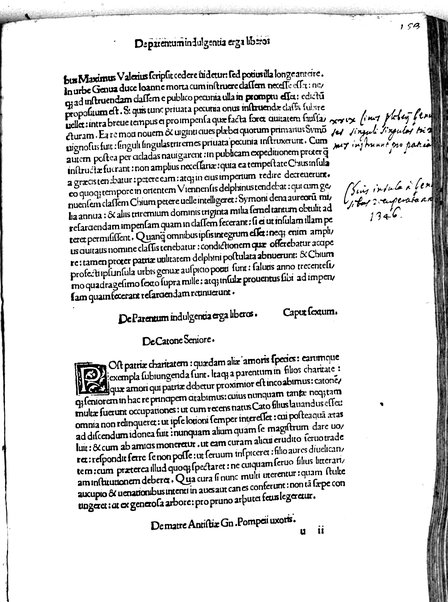 153
De parentum indulgentia erga liberos
bus Maximus Valerius scripsit cedere uidetur: sed potius illa longe anteire.
In urbe Genua duce Ioanne morta cum instruere classem necesse esset: ne
q; ad instruendam classem e publico pecunia ulla in promptu esset: edictũ
propositum est. Si quis tunc priuata pecunia onus instruendæ classis subire
uellet: intra breue tempus e pro impensa quæ facta foret ciuitatem satisfa
cturam. Ea re mota nouem & uiginti ciues plæbei quorum primanus Symõ
uignosus fuit: singuli singulas triremes priuata pecunia instruxerunt. Cum
autem postea per cicladas nauigarent: in publicam expeditionem præter q
instructæ fuerant: non amplius necessariæ: quia ea tempestate Chius insula
a græcis tenebatur: potita cepere eam: atq; in eius imperium redire decreuerunt.
eo quoq; tempore in orientem Viennensis delphinus tendebat: qui cum ge/
nuensem classem Chium petere uelle intelligeret: Symoni dena aureorũ mi/
lia annua: & aliis triremium dominis triginta milia semel tantum obtulit ad
resarciendam impensam quam in classem fecerant: si ei ut insulam illam pe
teret permisissent. Quanq̃ omnibus ipsis integrum esset: neq; enim ampli/
us ciuitatis nomine classis tenebatur: conditionem quæ offerebatur accipe
re: tamen propter patriæ utilitatem delphini postulata abnuerunt: & Chium
profecti ipsius ulis urbis genuæ auspicio potiti sunt: salutis anno trecentesi/
mo quadragesimo sexto supra mille: atq; insulæ prouentus sibi ad impen/
sam quam fecerant resarciendam retinuerunt.
De Parentum indulgentia erga liberos. Caput sextum.
De Catone Seniore.
POst patriæ charitatem: quædam aliæ amoris species: earumque
exempla subiungenda sunt. Itaq; a parentum in filios charitate:
quæ amori qui patriæ debetur proximior est incoabimus: catonẽ
q; seniorem in hac re principem citabimus: cuius nunquam tantæ neq; tam
multæ fuerunt occupationes: ut cum recens natus Cato filius lauandus esset
omnia non relinqueret: ut ipse lotioni semper interesset: cui posteaquã ætas
ad discendum idonea fuit: nunquam alium quam se magistrum dare uo/
luit: & cum ab amicos moneretur. ut eam curam alicui erudito seruo trade
ret: respondit ferre se non posse: ut seruum inspiceret: filio aures diuelican/
tem: cum præterea illud quoq; spectaret: ne cuiquam seruo filius litterari/
am institutionem deberet. Qua cura si nunc multi uterentur: quam stulte
aucupio & uenationibus intenti in aues aut canes conferunt: non tã sæpe con
tingeret: ut ex generosa arbore: pro pruno arbuti fetus legeretur.
De matre Antistiæ Gn. Pompeii uxoris.
u ii
xxix ciues plebei Genu
singuli singulas trire
mes instruunt pro patria
Chius insula a Genu
1346.